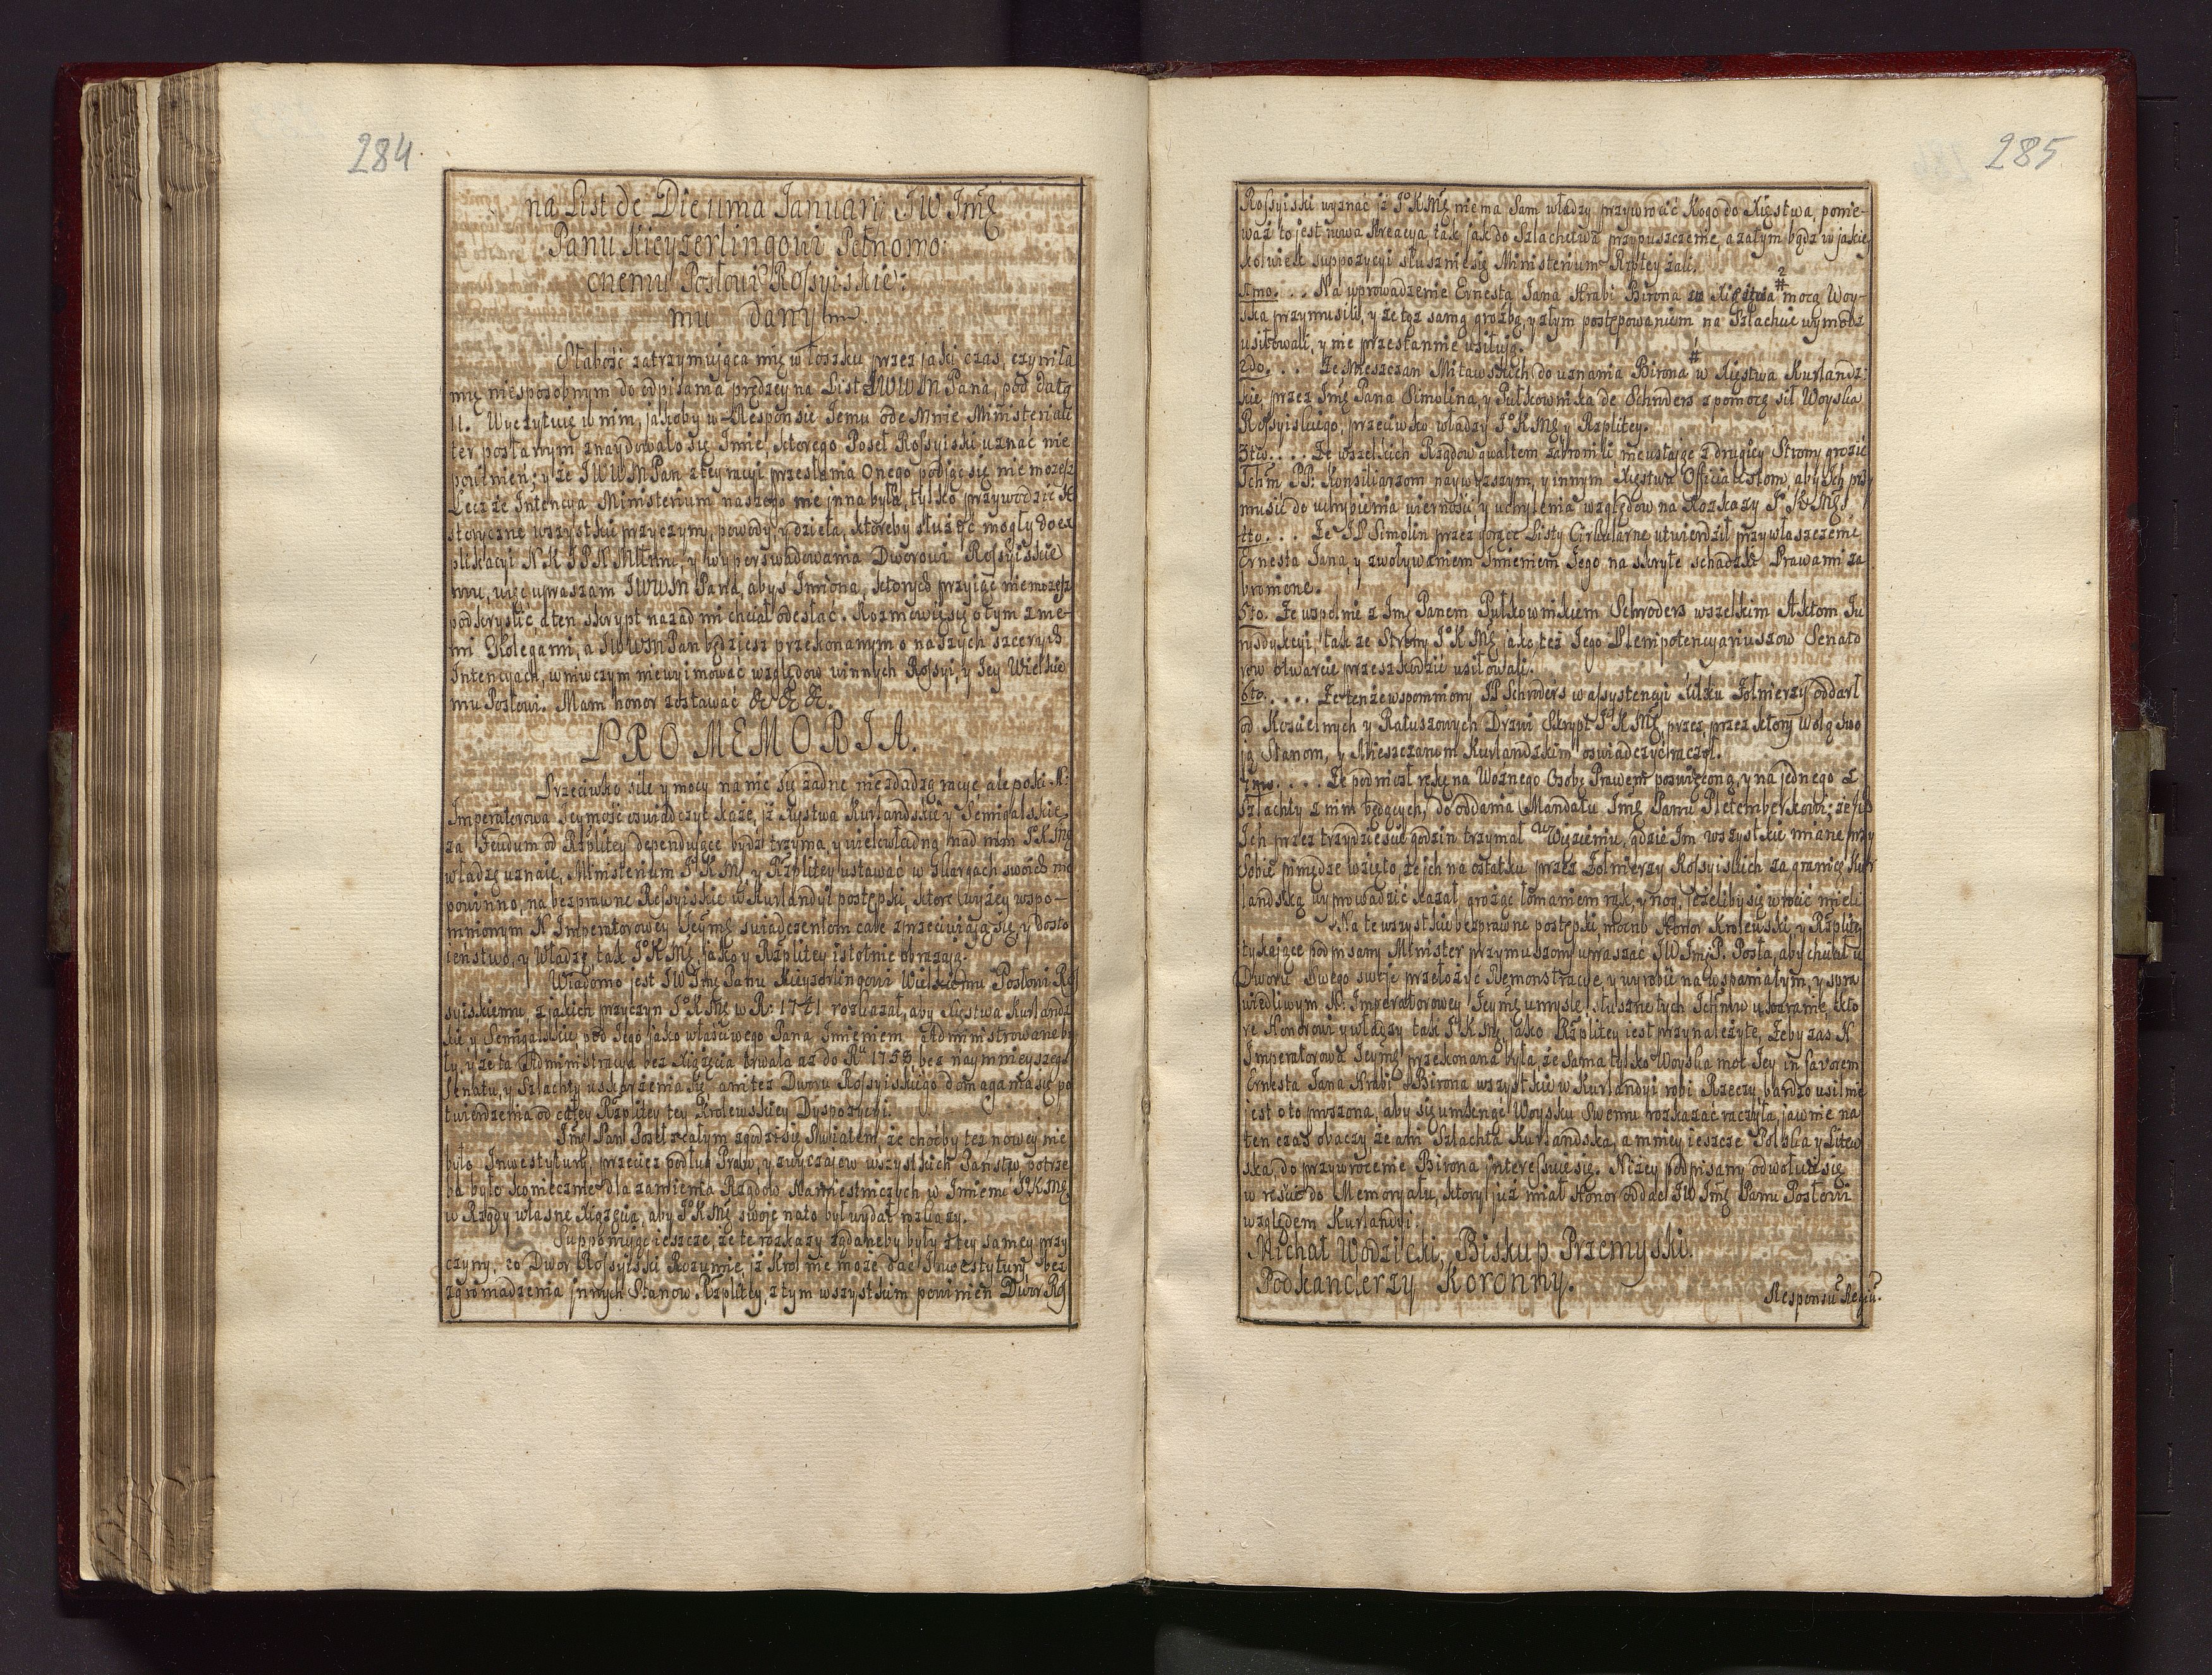 284.
na List de Die uma Januarii JW Jmę
Panu Kieyzerlingowi Pełnomo:
cnemu Posłowi Rossyiskie:
mu dany
Słabość zatrzymująca mię w łoszku przez jaki czas, czyniła
mię niesposobnym do odpisania prędzey na List JWWM Pana, pod datą
11. Wyczytuię w nim, jakoby w Responsie Jemu ode Mnie Ministeriali
ter posłanym znaydowało się Jmie, ktorego Poseł Rossyiski uznać nie
powinien; y że JWWMPan z tey racyi przesłania Onego podjąć się nie możesz
Lecz że Intencya Ministerium naszego nie jnna była, tylko przywodzić Hi
storyczne wszystkie przyczyny, powody, y dzieła, ktoreby służyć mogły do ex
plikacyi NK JPK MCłnn:, y wyperswadowania Dworowi Rossyiskie
mu, więc upraszam JWWM Pana, abyś Jmiona, ktorych przyiąć niemożesz
podkryslić, a ten skrypt nazad mi chciał odesłać. Rozmowię się o tym z me-
mi Kolegami, a JWWMPan będziesz przekonanym o naszych szczerych
Intencyach, w niwczym nieuyimować względow winnych Rossyi, y Jey Wielkie
mu Posłowi. Mam honor zostawać & & &.
PRO MEMORIA.
Przeciwko sile y mocy na nic się żadne niezdadzą racye ale poki N:
Jmperatorowa Jeymość oswiadczyć każe, iż Xystwa Kurlandskie y Semigalskie
za Feudum od Rzplitey dependujące bydź trzyma, y wielowładną nad nim JºKMę
władzę uznaie, Ministerium JºKMę, y Rzplitey ustawać w skargach swoich nie
powinno, na bezprawne Rossyiskie w Kurlandyi postępki, ktore wyżey wspo-
mnionym N Jmperatorowey Jeymę swiadczeniom cale zprzeciwiaią się, y dosto
ieństwo, y Władzę, tak JºKMę, jako y Rzplitey istotnie obrażaią.
Wiadomo jest JW Jmę Panu Kieyzerlingowi Wielkiemu Posłowi Ros
syiskiemu, z jakich przyczyn JºKMę w R: 1741 rozkazał, aby Xięstwa Kurlandz
kie, y Semigalskie pod Jego jako właściwego Pana Jmieniem Administrowane by
ły, y że ta Administracya bez Xiążęcia trwała aż do Rª 1758 bez naymnieyszego
Senatu, y Szlachty uskarżenia się anitez Dworu Rossyiskiego domagania się po
twierdzenia od całey Rzplitey tey Krolewskiey Dyspozycyi.
Jmę Pan Poseł z całym zgodzi się Swiatem, że choćby tez nowey nie
było Inwestytury, przeciez podług Praw, y zwyczajow wszystkich Państw, potrze
ba było koniecznie dla zamienia Rządow Namiestniczych w Jmieniu JºKMę
w Rządy własne Xiążęcia, aby JºKMę swoje nato był wydał rozkazy.
Suppomuję ieszcze, że te rozkazy żądaneby były z tey samey przy
czyny, co Dwor Rossyiski Rozumie, iż Krol nie może dać Jnwestytury bez
zgromadzenia jnnych Stanow Rzplitey, z tym wszystkim powinien Dwor Ros
285
Rossyiski wyznać iż JºKMę nie ma Sam władzy przywrocić Kogo do Xięstwa, ponie-
waż to jest nowa Kreacya, tak jak do Szlachectwa przypuszczenie, a zatym bądź w jakiey
kolwiek suppozycyi słusznie się Ministerium Rzpltey żali.
1mo. . . Na wprowadzenie Ernesta Jana Hrabi Birona na Xięstwa mocą Woy-
ska przymusili, y że toż samą groźbą, y złym postępowaniem na Szlachcie wymodz
usiłowali, y nie przestannie usiłują.
2do. . . Że Mieszczan Mitawskich do uznania Birona w Xięstwa Kurlandz:
kie, przez Jmę Pana Simolina, y Pułkownika de Schroders z pomocą sił Woyska
Rossyiskiego, przeciwko władzy JºKMę y Rzplitey.
3tio. . . . Że wszelkich Rządow gwałtem zabronili, nieustając z drugiey Strony grozić
Jchm PP: Konsiliarzom naywyższym, y innym Xięstwa Officialistom, aby Jch przy
musić do uchybienia wierności, y uchylenia względow na Rozkazy JºKMę.
4to. . . Że JP Simolin przez gorące Listy Cirkularne utwierdził przywłaszczenie
Ernesta Jana, y zwoływaniem Jmieniem Jego na skryte schadzki Prawami za
bronione.
5to. Że wspolnie z Jmę Panem Pułkownikiem Schroders wszelkim Aktom Ju
rysdykcyi, tak ze Strony JºKMę, jako też Jego Plenipotencyariuszow Senato
row otwarcie przeszkodzić usiłowali.
6to. . . . Że tenże wspomniony JP Schroders w assystencyi kilku żołnierzy oddarł
od Koscielnych y Ratuszowych Drzwi Skrypt JºKMę, przez, przez ktory wolą swo
ją Stanom, y Mieszczanom Kurlandzkim oswiadczyć raczył.
7mo. . . . . Że podniosł rękę na Woźnego Osobę Prawem poswięconą, y na jednego z
Szlachty z nim będących, do oddania Mandatu Jmę Panu Pletemberkowi; że
Jch przez trzydzieście godzin trzymał w Więzieniu, gdzie Jm wszystkie miane przy
sobie pieniądze wzięto, że jch na ostatku przez żołnierzy Rossyiskich za granicę Kur
landską wyprowadzić kazał, grożąc łomaniem rąk, y nog, jeżeliby się wrocić mieli
Na te wszystkie bezprawne postępki, mocno Honor Krolewski, y Rzplitey
tykające podpisany Minister przymuszony upraszać JW Jmę P. Posła, aby chciał u
Dworu Swego swoje przełożyć Remonstracye, y wyrobić na wspaniałym, y spra
wiedliwym N: Jmperatorowey Jeymę umyśle, słuszne tych Jchmw uważanie, kto
re Honorowi y władzy tak JºKMę, jako Rzplitey iest przynależyte, żeby zaś N
Jmperatorowa Jeymę przekonana była, że sama tylko Woyska moc Jey in favorem
Ernesta Jana Hrabi Birona wszystkie w Kurlandyi robi Rzeczy, bardzo usilnie
jest oto proszona, aby się umknąć Woysku Swemu rozkazać raczyła, jawnie na
ten czas obaczy, że ani Szlachta Kurlandska, a mniey ieszcze Polska y Litew
ska do przywrocenie Birona interessuie się. Niżey podpisany odwołuie się
w reście do Memoryału, ktory już miał Honor oddać JW Jmę Panu Posłowi
względem Kurlandyi.
Michał Wodzicki, Biskup Przemyski.
Podkanclerzy Koronny.
Responsū Regiū.